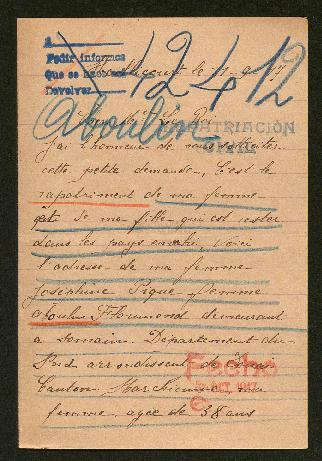 A
Pedir informes
Que se
Devolver
le 11-9-17
12412
Aboulin
REPATRIACIÓN
j'ai l'honneur de vous solliciter
cette petite demande, C'est le
rapatriment de ma femme
et de ma fille qui est rester
dans les pays envahi. Voici
l'adresse de ma femme
Joséphine Pique femme
Aboulin Florimond demeurant
a Somain Département du
Nord arrondissement de Douai
Canton Marchiennes ma
femme agée de 38 ans
Fecho
OCT. 1917